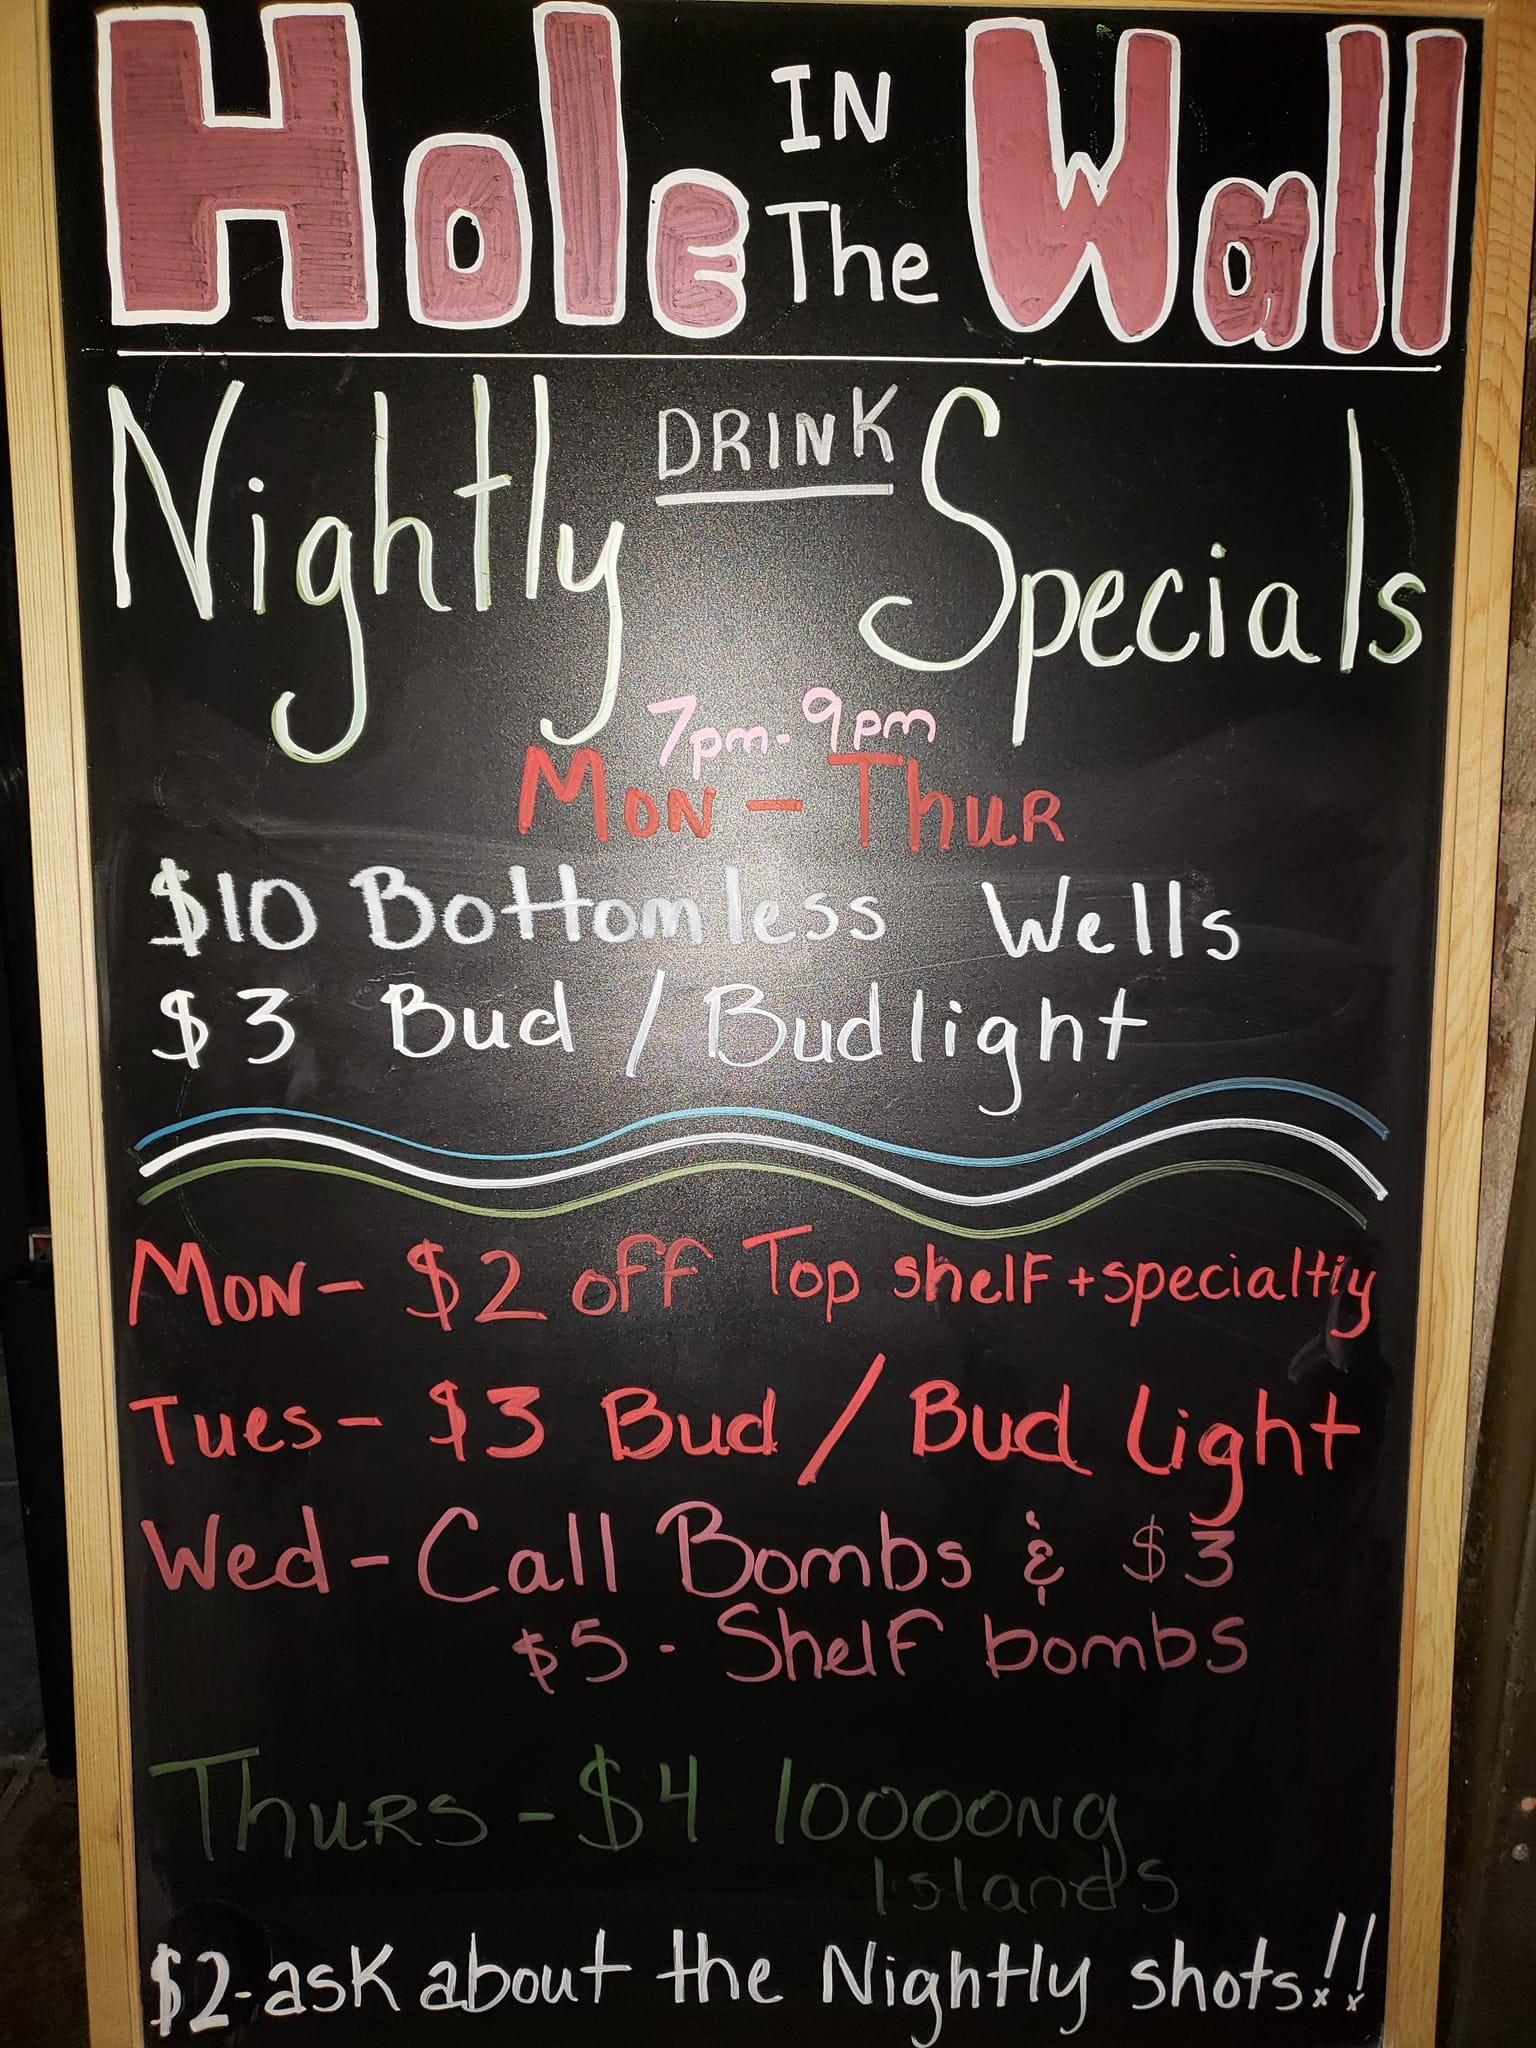 Hole IN The Wall
Nightly DRINK Specials
7pm-9pm
Mon - Thur
$10 Bottomless Wells
$3 Bud / Budlight
Mon - $2 off Top shelf + specialtiy
Tues - $3 Bud / Bud Light
Wed - Call Bombs & $3
$5 - Shelf bombs
Thurs - $4 looooong
Islands
$2-ask about the Nightly shots!!